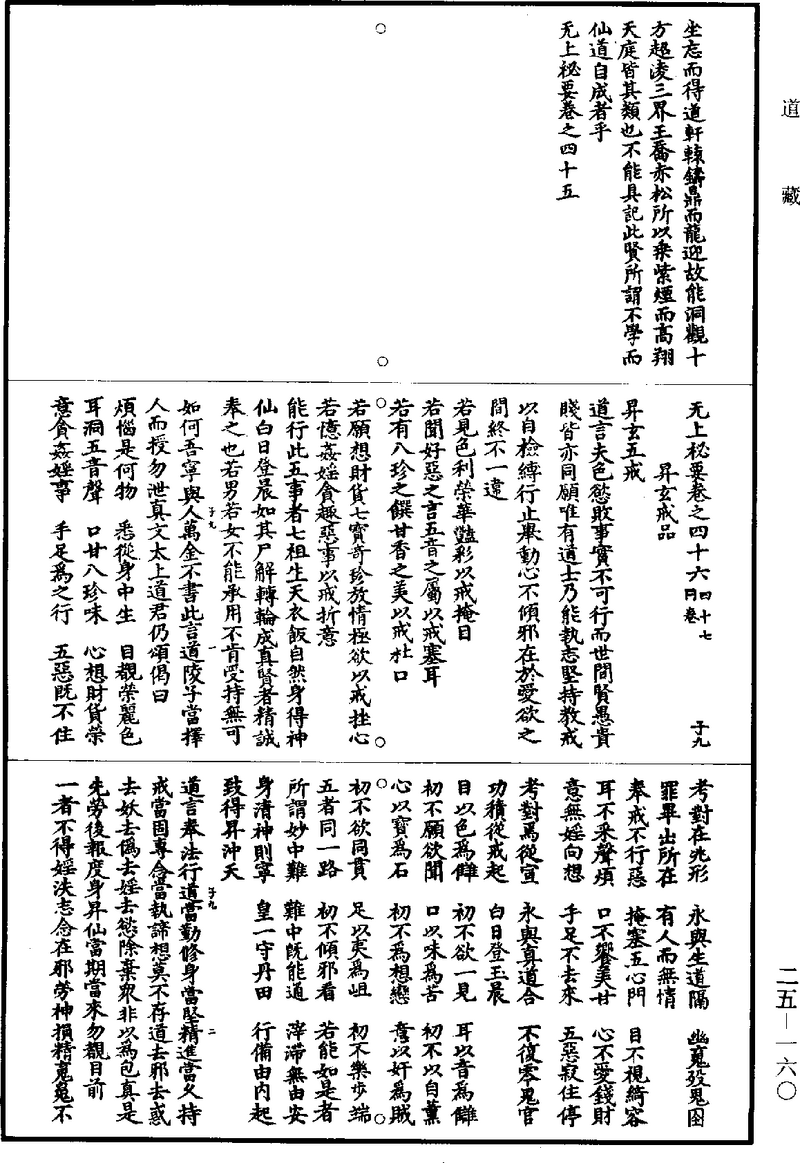 道藏
坐忘而得道軒轅鑄鼎而龍迎故能洞觀十
方超淩三界王喬赤松所以乗紫煙而高翔
天庭皆其類也不能具記此賢所謂不學而
仙道自成者乎
无上祕要卷之四十五
无上祕要卷之四十六 四十七同卷 子九
昇玄戒品
昇玄五戒
道言夫色慾敗事實不可行而世間賢愚貴
賤皆亦同願唯有道士乃能執志堅持教戒
以自檢縛行止舉動心不傾邪在於愛欲之
間終不一違
若見色利榮華豔彩以戒掩目
若聞好惡之言五音之屬以戒塞耳
若有八珍之饌甘香之美以戒杜口
若願想財貨七寶奇珍放情極欲以戒挫心
若憶姦婬貪趣惡事以戒折意
能行此五事者七祖生天衣飯自然身得神
仙白日登晨如其尸解轉輪成真賢者精誠
奉之也若男若女不能承用不肯受持無可
子九 一
如何吾寧與人萬金不書此言道陵子當擇
人而授勿泄真文太上道君仍頌偈曰
煩惱是何物 悉從身中生 目觀榮麗色
耳洞五音聲 口甘八珍味 心想財貨榮
意貪姦婬事 手足爲之行 五惡既不住
考對在兆形 永與生道隔 幽魂殁鬼囹
罪畢出所在 有人而無情
奉戒不行惡 掩塞五心門 目不視綺容
耳不釆聲煩 口不饗美甘 心不愛錢財
意無婬向想 手足不去來 五惡寂住停
考對焉從宣 永與真道合 不復零鬼官
功積從戒起 白日登玉晨
目以色爲讎 初不欲一見 耳以音爲讎
初不願欲聞 口以味爲苦 初不以自薰
心以寶爲石 初不爲想戀 意以奸爲賊
初不欲同貫 足以夷爲岨 初不樂步端
五者同一路 初不傾邪看 若能如是者
所謂妙中難 難中既能通 滓滯無由安
身清神則寧 皇一守丹田 行備由內起
致得昇沖天
子九 二
道言奉法行道當勤修身當堅精進當久持
戒當固專念當執諦想莫不存道去邪去惑
去妖去僞去婬去慾除棄眾非以爲包真是
先勞後報度身昇仙當期當來勿觀目前
一者不得婬泆志念在邪勞神損精魂魄不
二五—一六〇